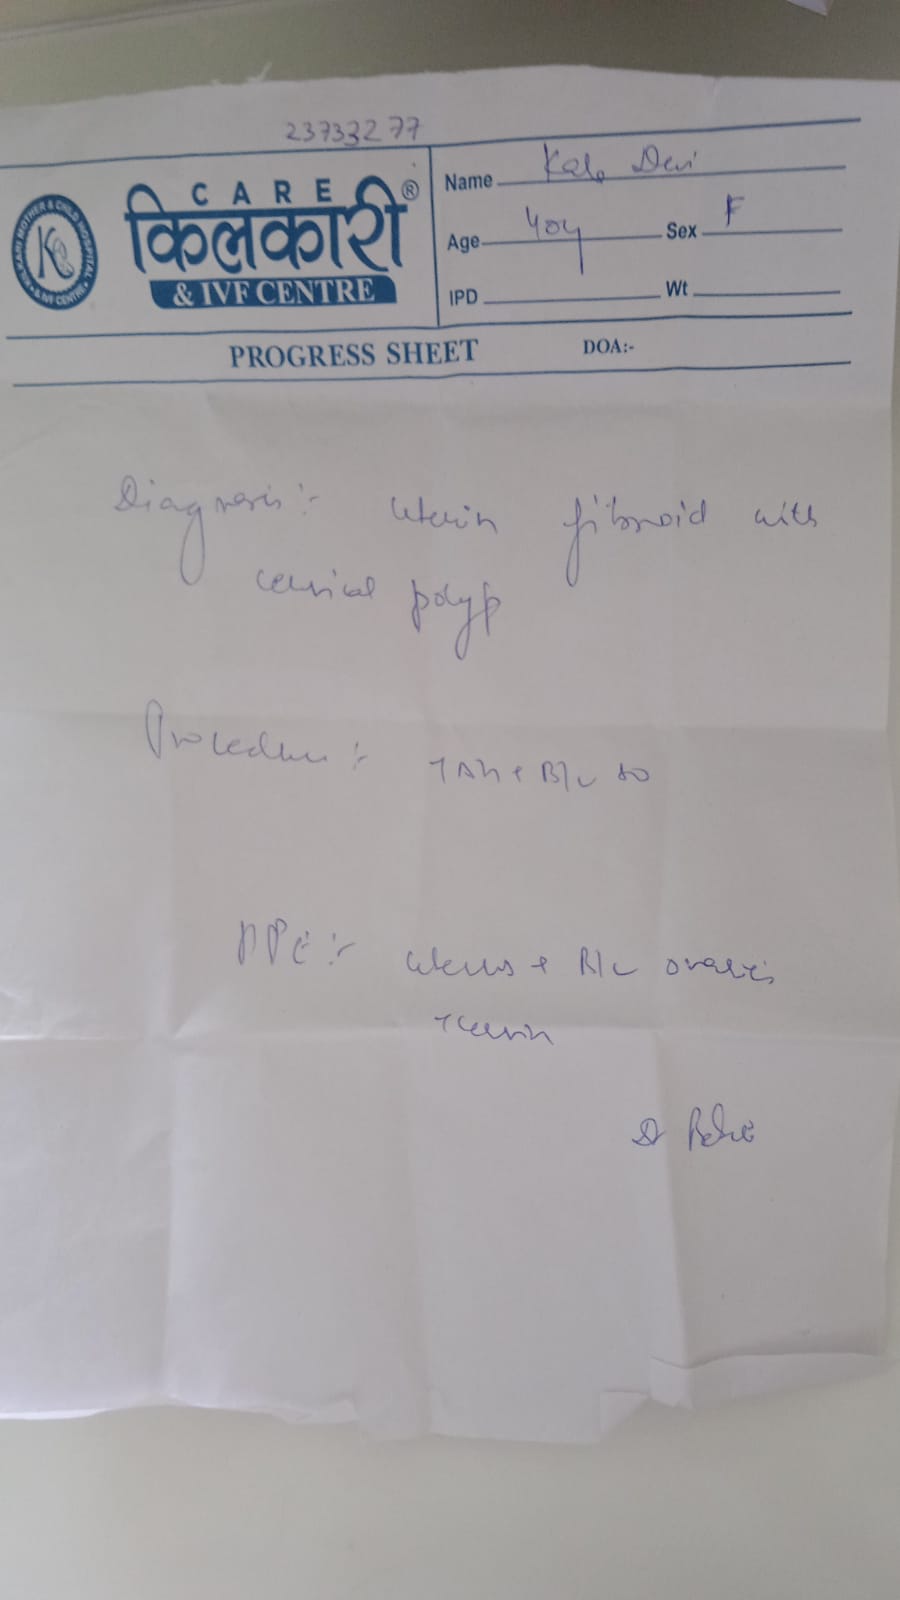 23733277
CARE
किलकारी ®
& IVF CENTRE
KILKARI MOTHER & CHILD HOSPITAL & IVF CENTRE
Name Devi
Age 40y Sex F
IPD Wt
PROGRESS SHEET DOA:-
Diagnosis :- Uterin fibroid with
cervical polyp
Procedure :- TAH + B/L SO
uterus + B/L ovaries
Dr